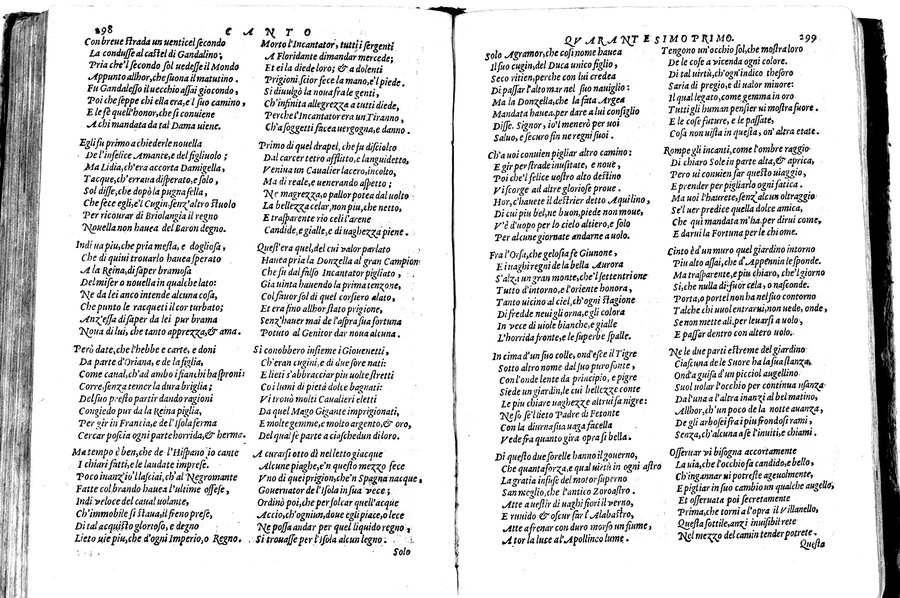 298 CANTO
Con breue strada un uenticel secondo
La condusse al castel di Gandalino;
Pria che'l secondo Sol uedesse il Mondo
Appunto allhor, che suona il matutino.
Fu Gandalesso il uecchio assai giocondo,
Poi che seppe chi ella era, e'l suo camino,
E le fè quell'honor, che si conuiene
A chi mandata da tal Dama uiene.
Egli fu primo a chiederle nouella
De l'infelice Amante, e del figliuolo;
Ma Lidia, ch'era accorta Damigella,
Tacque, ch'erraua disperato, e solo,
Sol disse, che dopò la pugna fella,
Che fece egli, e'l Cugin senz'altro stuolo
Per ricourar di Briolangia il regno
Nouella non hauea del Baron degno.
Indi ua piu, che pria mesta, e dogliosa,
Che di quiui trouarlo hauea sperato
A la Reina, di saper bramosa
Del misero nouella in qualche lato:
Ne da lei anco intende alcuna cosa,
Che punto le racqueti il cor turbato;
Anz'essa di saper da lei pur brama
Noua di lui, che tanto apprezza, & ama.
Però date, che l'hebbe e carte, e doni
Da parte d'Oriana, e de la figlia,
Come caual, ch'ad ambo i fianchi ha sproni:
Corre, senza temer la dura briglia;
Del suo presto partir dando ragioni
Congiedo pur da la Reina piglia,
Per gir in Francia, e de l'Isola ferma
Cercar poscia ogni parte horrida, & herma.
Ma tempo è ben, che de l'Hispano io cante
I chiari fatti, e le laudate imprese.
Poco inanz'io'l lasciai, ch'al Negromante
Fatte col brando hauea l'ultime offese,
Indi ueloce del caual uolante,
Ch'immobile si staua, il freno prese,
Di tal acquisto glorioso, e degno
Lieto uie piu, che d'ogni Imperio, o Regno.
Morto l'Incantator, tutti i sergenti
A Floridante dimandar mercede;
Et ei la diede loro; & a dolenti
Prigioni scior fece la mano, e'l piede.
Si diuulgò la noua fra le genti,
Ch'infinita allegrezza a tutti diede,
Perche l'Incantatore era un Tiranno,
Ch'a soggetti facea uergogna, e danno.
Primo di quel drapel, che fu disciolto
Dal carcer tetro afflitto, e languidetto,
Veniua un Caualier lacero, incolto,
Ma di reale, e uenerando aspetto;
Ne magrezza, o pallor potea dal uolto
La bellezza celar, non piu, che netto,
E trasparente rio celi l'arene
Candide, e gialle, e di uaghezza piene.
Quest'era quel, del cui valor parlato
Hauea pria la Donzella al gran Campione
Che fu dal falso Incantator pigliato,
Gia uinta hauendo la prima tenzone,
Col fauor sol di quel corsiero alato,
Et era fino allhor stato prigione,
Senz'hauer mai de l'aspra sua fortuna
Potuto al Genitor dar noua alcuna.
Si conobbero insieme i Giouenetti,
Ch'eran cugini, e di due sore nati:
E lieti s'abbracciar piu uolte stretti
Co i lumi di pietà dolce bagnati:
Vi trouò molti Caualieri eletti
Da quel Mago Gigante imprigionati,
E molte gemme, e molto argento, & oro,
Del qual fe parte a ciaschedun di loro.
A curarsi otto dì nel letto giacque
Alcune piaghe, e'n questo mezzo fece
Vno di quei prigion, che'n Spagna nacque,
Gouernator de l'Isola in sua vece;
Ordinò poi, che per solcar quell'acque
Accio, ch'ogniun, doue egli piace, o lece
Ne possa andar per quel liquido regno,
Si trouasse per l'Isola alcun legno.
Solo
QVARANTESIMOPRIMO. 299
Solo Agramor, che cosi nome hauea
Il suo cugin, del Duca unico figlio,
Seco ritien, perche con lui credea
Di passar l'alto mar nel suo nauiglio:
Ma la Donzella, che la fata Argea
Mandata hauea, per dare a lui consiglio
Disse. Signor, io'l menerò per uoi
Saluo, e securo fin ne regni suoi.
Ch'a uoi conuien pigliar altro camino:
E gir per strade inusitate, e noue,
Poi che'l felice uostro alto destino
Vi scorge ad altre gloriose proue.
Hor, c'hauete il destrier detto Aquilino,
Di cui piu bel, ne buon, piede non moue,
V'è d'uopo per lo cielo altiero, e solo
Per alcune giornate andarne a uolo.
Fra l'Orsa, che gelosa fe Giunone,
E i uaghi regni de la bella Aurora
S'alza un gran monte, che'l settentrione
Tutto d'intorno, e l'oriente honora,
Tanto uicino al ciel, ch'ogni stagione
Di fredde neui gli orna, e gli colora
In vece di uiole bianche, e gialle
L'horrida fronte, e le superbe spalle.
In cima d'un suo colle, ond'esce il Tigre
Sotto altro nome dal suo puro fonte,
Con l'onde lente da principo, e pigre
Siede un giardin, le cui bellezze conte
Le piu chiare uaghezze altrui fa nigre:
Ne so se'l lieto Padre di Fetonte
Con la diurna sua uaga facella
Vede fra quanto gira opra si bella.
Di questo due sorelle hanno il gouerno,
Che quanta forza, e qual uirtù in ogni astro
La gratia infuse del motor superno
San meglio, che l'antico Zoroastro.
Atte a uestir di uaghi fiori il verno,
E ruuido & oscur far l'Alabastro,
Atte a frenar con duro morso un fiume,
A tor la luce al Apollineo lume.
Tengono un'occhio sol, che mostra loro
De le cose a vicenda ogni colore.
Di tal virtù, ch'ogn'indico thesoro
Saria di pregio, e di ualor minore:
Il qual legato, come gemma in oro
Tutti gli human pensier ui mostra fuore.
E le cose future, e le passate,
Cosa non uista in questa, on'altra etate.
Rompe gli incanti, come l'ombre raggio
Di chiaro Sole in parte alta, & aprica,
Pero ui conuien far questo uiaggio,
E prender per pigliarlo ogni fatica.
Ma uoi l'haurete, senz'alcun oltraggio
Se'l uer predice quella dolce amica,
Che qui mandata m'ha, per dirui come,
E darui la Fortuna per le chiome.
Cinto è d'un muro quel giardino intorno
Piu alto assai, che d'Appennin le sponde.
Ma trasparente, e piu chiaro, che'l giorno
Si, che nulla di fuor cela, o nasconde.
Porta, o portel non ha nel suo contorno
Tal che chi uuol entrarui, non uede, onde,
Se non mette ali, per leuarsi a uolo,
E passar dentro con altero uolo.
Ne le due parti estreme del giardino
Ciascuna de le Suore ha la sua stanza,
Ond'a guisa d'un picciol augellino
Suol uolar l'occhio per continua usanza
Da l'una a l'altra inanzi al bel matino,
Allhor, ch'un poco de la notte auanza,
De gli arbosei fra i piu frondosi rami,
Senza, ch'alcuna a se l'inuiti, e chiami.
Osseruar vi bisogna accortamente
La uia, che l'occhio sa candido, e bello,
Ch'ingannar ui potreste ageuolmente,
E pigliar in suo cambio un qualche augello,
Et osseruata poi secretamente
Prima, che torni a l'opra il Villanello,
Questa sottile, anzi inuisibil rete
Nel mezzo del camin tender potrete.
Questa